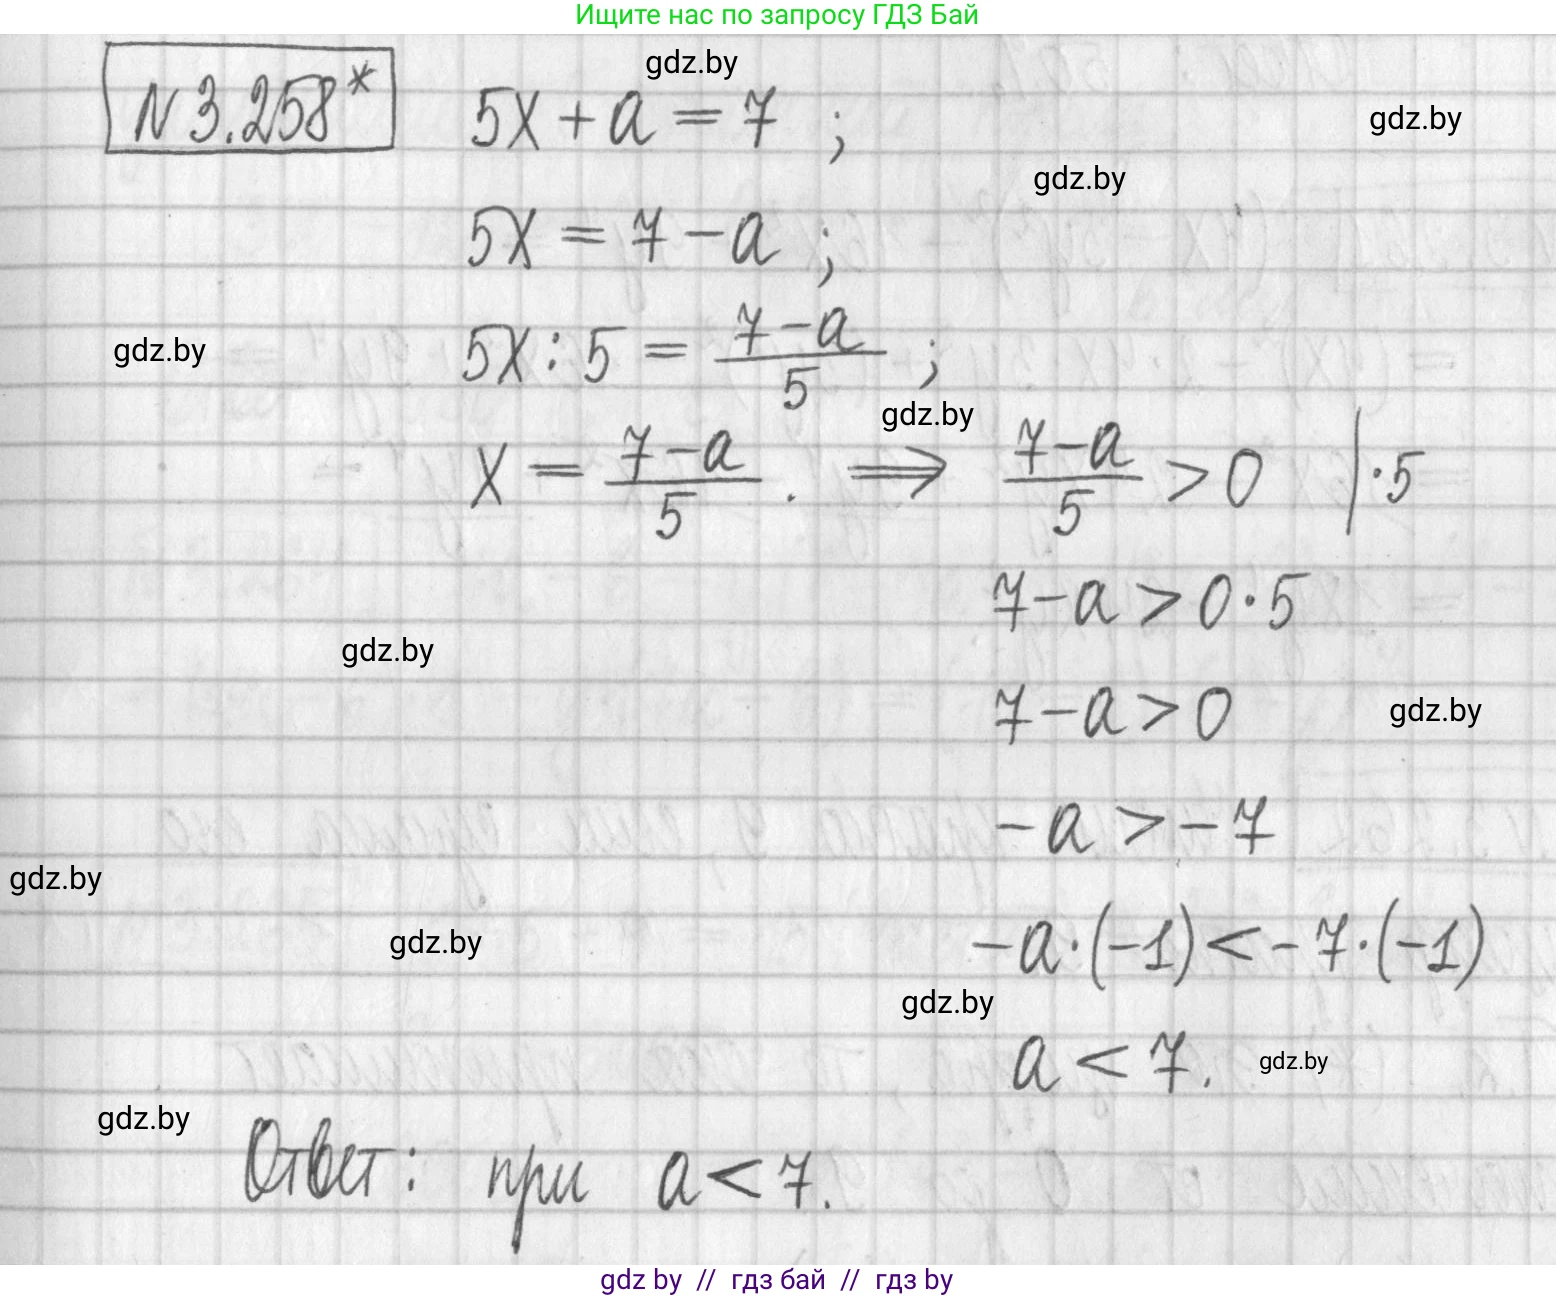 Ищите нас по запросу ГДЗ Бай
gdz.by
N 3.258* 5x + a = 7 ;
gdz.by
gdz.by
5x = 7 - a ;
gdz.by
5x : 5 = (7 - a)/5 ;
gdz.by
x = (7 - a)/5 . ⟹ (7 - a)/5 > 0 | · 5
7 - a > 0 · 5
gdz.by
7 - a > 0
gdz.by
- a > - 7
gdz.by
gdz.by
- a · (-1) < - 7 · (-1)
gdz.by
a < 7.
gdz.by
gdz.by
Ответ: при a < 7.
gdz by // гдз бай // гдз by